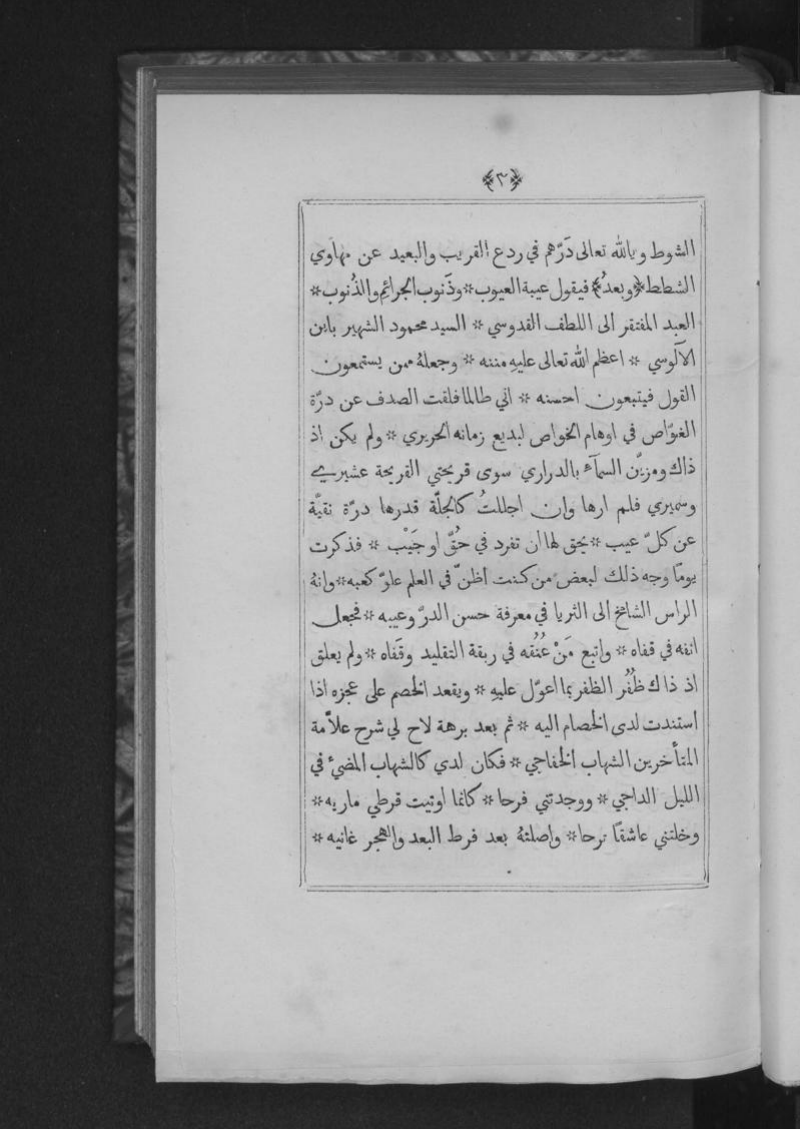 ﴿٣﴾
الشوط وبالله تعالى دَرّهم في ردع القريب والبعيد عن مهاوي
الشطط ﴿وبعدُ﴾ فيقول عيبة العيوب * وذَنوب الجرائم والذُنوب *
العبد المفتقر الى اللطف القدوسي * السيد محمود الشهير بابن
الآلوسي * اعظم الله تعالى عليهِ مننه * وجعلهُ ممن يستمعون
القول فيتبعون احسنه * اني طالما فلقت الصدف عن درّة
الغوّاص في اوهام الخواص لبديع زمانه الحريري * ولم يكن اذ
ذاك ومزيّن السمآء بالدراري سوى قريحتي القريحة عشيري
وسميري فلم ارها وان اجللتُ كالجلّة قدرها درّة نقيّة
عن كلّ عيب * يحق لها ان تفرد في حُقّ او جَيْب * فذكرت
يومًا وجه ذلك لبعض من كنت أظنّ في العلم علوّ كعبه * وانهُ
الراس الشامخ الى الثريا في معرفة حسن الدرّ وعيبه * فجعل
انفه في قفاه * واتبع مَنْ عُنُقه في ربقة التقليد وقَفاه * ولم يعلق
اذ ذاك ظُفُر الظفر بما اعوّل عليهِ * ويقعد الخصم على عجزه اذا
استندت لدى الخصام اليه * ثم بعد برهة لاح لي شرح علاّمة
المتأخرين الشهاب الخفاجي * فكان لدي كالشهاب المضيء في
الليل الداجي * ووجدتني فرحا * كانما اوتيت قرطي ماريه *
وخلتني عاشقًا ترحا * واصلتهُ بعد فرط البعد والهجر غانيه *